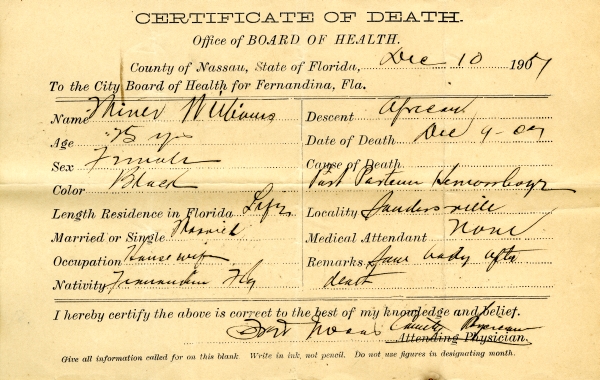 CERTIFICATE OF DEATH.
Office of BOARD OF HEALTH.
County of Nassau, State of Florida, Dec 10 1907
To the City Board of Health for Fernandina, Fla.
Name Williams
Age 25 yrs
Sex Female
Color Black
Length Residence in Florida Life
Married or Single Married
Occupation House wife
Nativity Fernandina Fla
Descent African
Date of Death Dec 9-007
Cause of Death
Post Partum
Locality Sandersville
Medical Attendant None
Remarks Saw body after
death
I hereby certify the above is correct to the best of my knowledge and belief.
County
Attending Physician.
Give all information called for on this blank Write in ink, not pencil. Do not use figures in designating month.